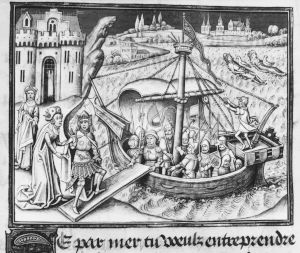 E par mer tu veulz entreprendre